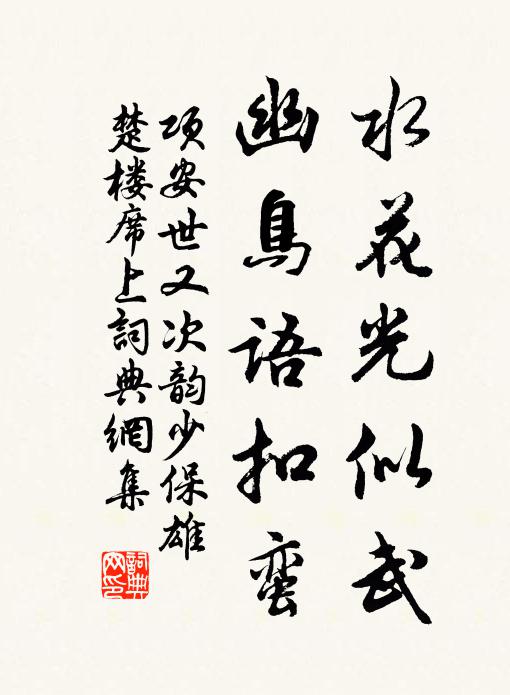 水花光似武
幽鳥語扣蛮
项安世又次韵少保雄
楚楼席上詞典網集
詞典網印